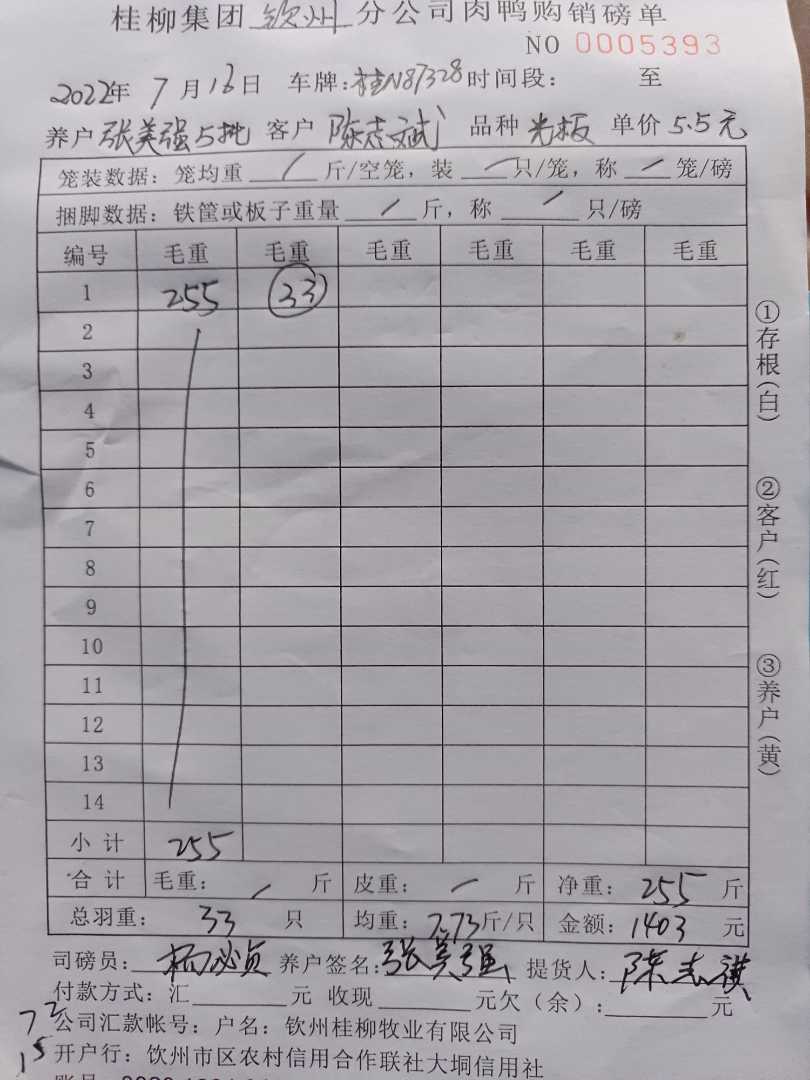 桂柳集团 钦州 分公司肉鸭购销磅单
NO 0005393
2022年 7 月 16 日 车牌:桂N87328 时间段: 至
养户 张美强5批 客户 陈志斌 品种 光板 单价 5.5元
笼装数据: 笼均重 / 斤/空笼, 装 / 只/笼, 称 / 笼/磅
捆脚数据: 铁筐或板子重量 / 斤, 称 / 只/磅
编号 毛重 毛重 毛重 毛重 毛重 毛重
1 255 33
2
3
4
5
6
7
8
9
10
11
12
13
14
小计 255
合计 毛重: / 斤 皮重: / 斤 净重: 255 斤
总羽重: 33 只 均重: 7.73斤/只 金额: 1403 元
司磅员: 杨必贞 养户签名: 张美强 提货人: 陈志
付款方式: 汇 元 收现 元欠(余): 元
公司汇款帐号: 户名: 钦州桂柳牧业有限公司
开户行: 饮州市区农村信用合作联社大垌信用社
①存根(白)
②客户(红)
③养户(黄)